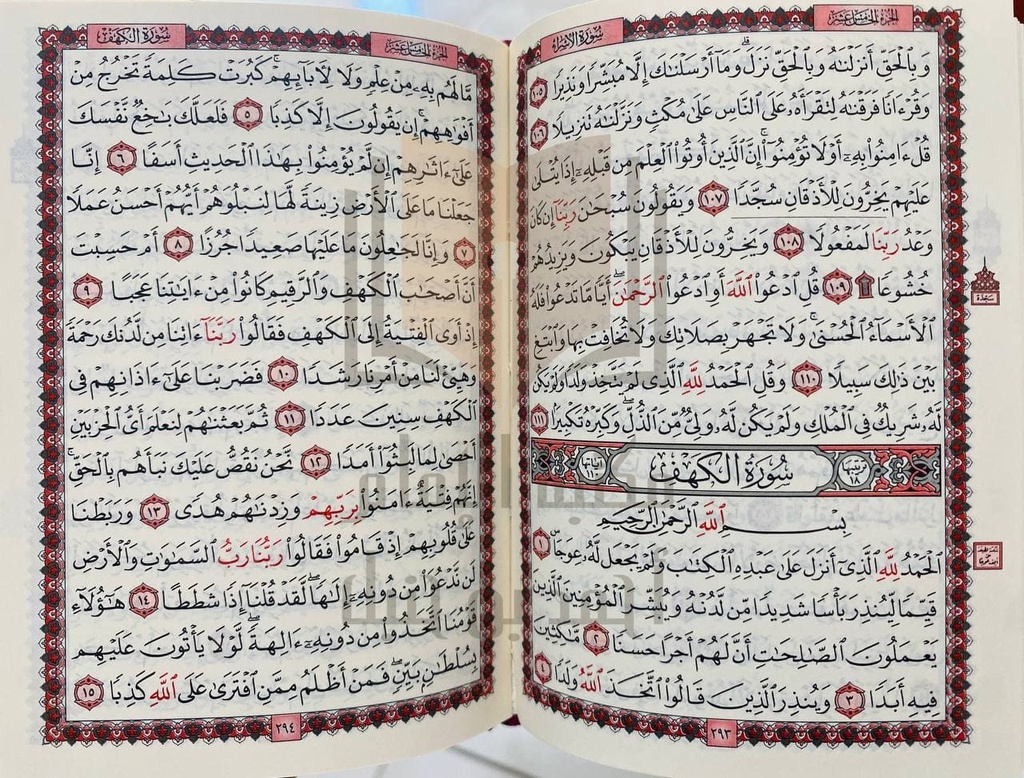 الجزء الخامس عشر
سورة الإسراء
وَبِالْحَقِّ أَنزَلْنَاهُ وَبِالْحَقِّ نَزَلَ ۗ وَمَا أَرْسَلْنَاكَ إِلَّا مُبَشِّرًا وَنَذِيرًا ١٠٥
وَقُرْءَانًا فَرَقْنَاهُ لِتَقْرَأَهُ عَلَى النَّاسِ عَلَىٰ مُكْثٍ وَنَزَّلْنَاهُ تَنزِيلًا ١٠٦
قُلْ ءَامِنُوا بِهِ أَوْ لَا تُؤْمِنُوا ۚ إِنَّ الَّذِينَ أُوتُوا الْعِلْمَ مِن قَبْلِهِ إِذَا يُتْلَىٰ
عَلَيْهِمْ يَخِرُّونَ لِلْأَذْقَانِ سُجَّدًا ١٠٧ وَيَقُولُونَ سُبْحَانَ رَبِّنَا إِن كَانَ
وَعْدُ رَبِّنَا لَمَفْعُولًا ١٠٨ وَيَخِرُّونَ لِلْأَذْقَانِ يَبْكُونَ وَيَزِيدُهُمْ
خُشُوعًا ۩ ١٠٩ قُلِ ادْعُوا اللَّهَ أَوِ ادْعُوا الرَّحْمَٰنَ ۖ أَيًّا مَا تَدْعُوا فَلَهُ
سجدة
الْأَسْمَاءُ الْحُسْنَىٰ ۚ وَلَا تَجْهَرْ بِصَلَاتِكَ وَلَا تُخَافِتْ بِهَا وَابْتَغِ
بَيْنَ ذَٰلِكَ سَبِيلًا ١١٠ وَقُلِ الْحَمْدُ لِلَّهِ الَّذِي لَمْ يَتَّخِذْ وَلَدًا وَلَمْ يَكُن
لَّهُ شَرِيكٌ فِي الْمُلْكِ وَلَمْ يَكُن لَّهُ وَلِيٌّ مِّنَ الذُّلِّ ۖ وَكَبِّرْهُ تَكْبِيرًا ١١١
ترتيبها ١٨ سُورَةُ الْكَهْفِ آياتها ١١٠
بِسْمِ اللَّهِ الرَّحْمَٰنِ الرَّحِيمِ
الْحَمْدُ لِلَّهِ الَّذِي أَنزَلَ عَلَىٰ عَبْدِهِ الْكِتَابَ وَلَمْ يَجْعَل لَّهُ عِوَجًا ۜ ١
قَيِّمًا لِّيُنذِرَ بَأْسًا شَدِيدًا مِّن لَّدُنْهُ وَيُبَشِّرَ الْمُؤْمِنِينَ الَّذِينَ
يَعْمَلُونَ الصَّالِحَاتِ أَنَّ لَهُمْ أَجْرًا حَسَنًا ٢ مَّاكِثِينَ
فِيهِ أَبَدًا ٣ وَيُنذِرَ الَّذِينَ قَالُوا اتَّخَذَ اللَّهُ وَلَدًا ٤
٢٩٣
الجزء الخامس عشر
سورة الكهف
مَّا لَهُم بِهِ مِنْ عِلْمٍ وَلَا لِآبَائِهِمْ ۚ كَبُرَتْ كَلِمَةً تَخْرُجُ مِنْ
أَفْوَاهِهِمْ ۚ إِن يَقُولُونَ إِلَّا كَذِبًا ٥ فَلَعَلَّكَ بَاخِعٌ نَّفْسَكَ
عَلَىٰ ءَاثَارِهِمْ إِن لَّمْ يُؤْمِنُوا بِهَٰذَا الْحَدِيثِ أَسَفًا ٦ إِنَّا
جَعَلْنَا مَا عَلَى الْأَرْضِ زِينَةً لَّهَا لِنَبْلُوَهُمْ أَيُّهُمْ أَحْسَنُ عَمَلًا
٧ وَإِنَّا لَجَاعِلُونَ مَا عَلَيْهَا صَعِيدًا جُرُزًا ٨ أَمْ حَسِبْتَ
أَنَّ أَصْحَابَ الْكَهْفِ وَالرَّقِيمِ كَانُوا مِنْ ءَايَاتِنَا عَجَبًا ٩
إِذْ أَوَى الْفِتْيَةُ إِلَى الْكَهْفِ فَقَالُوا رَبَّنَا ءَاتِنَا مِن لَّدُنكَ رَحْمَةً
وَهَيِّئْ لَنَا مِنْ أَمْرِنَا رَشَدًا ١٠ فَضَرَبْنَا عَلَىٰ ءَاذَانِهِمْ فِي
الْكَهْفِ سِنِينَ عَدَدًا ١١ ثُمَّ بَعَثْنَاهُمْ لِنَعْلَمَ أَيُّ الْحِزْبَيْنِ
أَحْصَىٰ لِمَا لَبِثُوا أَمَدًا ١٢ نَّحْنُ نَقُصُّ عَلَيْكَ نَبَأَهُم بِالْحَقِّ ۚ
إِنَّهُمْ فِتْيَةٌ ءَامَنُوا بِرَبِّهِمْ وَزِدْنَاهُمْ هُدًى ١٣ وَرَبَطْنَا
عَلَىٰ قُلُوبِهِمْ إِذْ قَامُوا فَقَالُوا رَبُّنَا رَبُّ السَّمَاوَاتِ وَالْأَرْضِ
لَن نَّدْعُوَ مِن دُونِهِ إِلَٰهًا ۖ لَّقَدْ قُلْنَا إِذًا شَطَطًا ١٤ هَٰؤُلَاءِ
قَوْمُنَا اتَّخَذُوا مِن دُونِهِ ءَالِهَةً ۖ لَّوْلَا يَأْتُونَ عَلَيْهِم
بِسُلْطَانٍ بَيِّنٍ ۖ فَمَنْ أَظْلَمُ مِمَّنِ افْتَرَىٰ عَلَى اللَّهِ كَذِبًا ١٥
٢٩٤